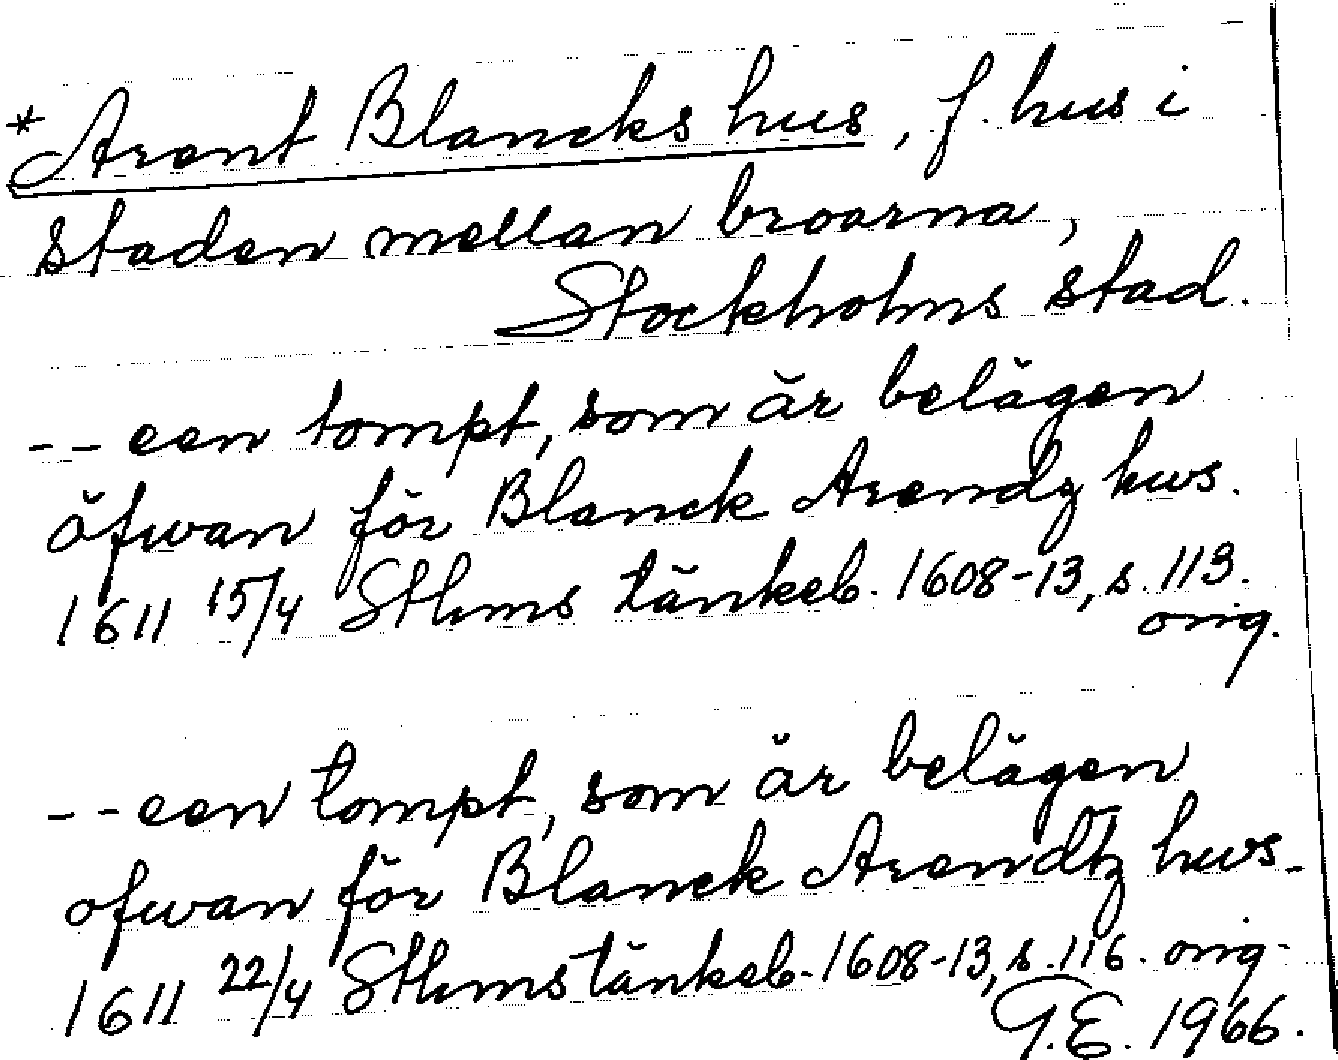 *Arent Blancks hus, f. hus i
staden mellan broarna,
Stockholms stad.
-- een tompt, som är belägen
öfwan för Blanck Arendz hws.
1611 15/4 Sthms tänkeb. 1608-13, s. 113.
orig.
-- een tompt, som är belägen
ofwan för Blanck Arendtz hws.
1611 22/4 Sthms tänkeb. 1608-13, s. 116. orig.
G.E. 1966.